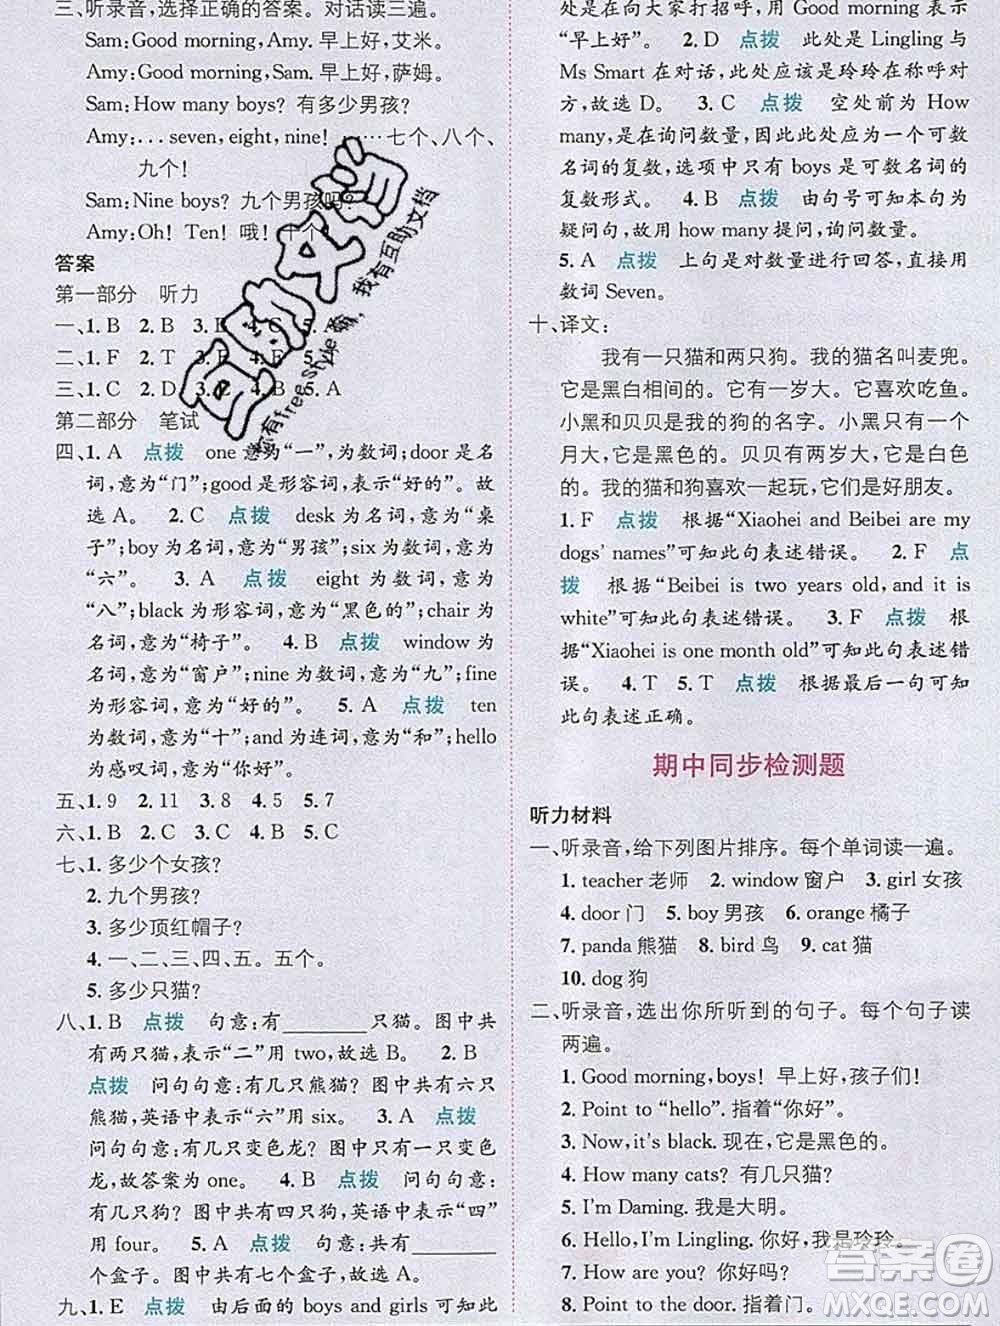 三、听录音，选择正确的答案。对话读三遍。
Sam:Good morning, Amy. 早上好，艾米。
Amy:Good morning, Sam. 早上好，萨姆。
Sam:How many boys? 有多少男孩？
Amy:...seven, eight, nine! ……七个、八个、
九个！
Sam:Nine boys? 九个男孩吗？
Amy:Oh! Ten! 哦！
答案
第一部分 听力
一、1. B 2. B 3. 4. C 5. B
二、1. F 2. T 3. 4. F 5. T
三、1. C 2. D 3. 4. B 5. A
第二部分 笔试
四、1. A 点拨 one 意为“一”，为数词；door 是名
词，意为“门”；good 是形容词，意为“好的”。故
选 A。 2. C 点拨 desk 为名词，意为“桌
子”；boy 为名词，意为“男孩”；six 为数词，意为
“六”。 3. A 点拨 eight 为数词，意为
“八”；black 为形容词，意为“黑色的”；chair 为
名词，意为“椅子”。 4. B 点拨 window 为
名词，意为“窗户”；nine 为数词，意为“九”；fine
为形容词，意为“好的”。 5. A 点拨 ten
为数词，意为“十”；and 为连词，意为“和”；hello
为感叹词，意为“你好”。
五、1. 9 2. 11 3. 8 4. 5 5. 7
六、1. B 2. C 3. B 4. B 5. C
七、1. 多少个女孩？
2. 九个男孩？
3. 多少顶红帽子？
4. 一、二、三、四、五。五个。
5. 多少只猫？
八、1. B 点拨 句意：有________只猫。图中共
有两只猫，表示“二”用 two，故选 B。 2. B
点拨 问句句意：有几只熊猫？图中共有六只
熊猫，英语中表示“六”用 six。 3. A 点拨
问句句意：有几只变色龙？图中只有一只变色
龙，故答案为 one。 4. B 点拨 问句句意：
有几只狗？图中共有四只狗，英语中表示“四”
用 four。 5. A 点拨 句意：共有________
个盒子。图中共有七个盒子，故选 A。
九、1. E 点拨 由后面的 boys and girls 可知此
处是在向大家打招呼，用 Good morning 表示
“早上好”。 2. D 点拨 此处是 Lingling 与
Ms Smart 在对话，此处应该是玲玲在称呼对
方，故选 D。 3. C 点拨 空处前为 How
many，是在询问数量，因此此处应为一个可数
名词的复数，选项中只有 boys 是可数名词的
复数形式。 4. B 点拨 由句号可知本句为
疑问句，故用 how many 提问，询问数量。
5. A 点拨 上句是对数量进行回答，直接用
数词 Seven。
十、译文：
我有一只猫和两只狗。我的猫名叫麦兜。
它是黑白相间的。它有一岁大。它喜欢吃鱼。
小黑和贝贝是我的狗的名字。小黑只有一个
月大，它是黑色的。贝贝有两岁大，它是白色
的。我的猫和狗喜欢一起玩，它们是好朋友。
1. F 点拨 根据“Xiaohei and Beibei are my
dogs' names”可知此句表述错误。 2. F 点
拨 根据“Beibei is two years old, and it is
white”可知此句表述错误。 3. F 点拨 根
据“Xiaohei is one month old”可知此句表述错
误。 4. T 5. T 点拨 根据最后一句可知
此句表述正确。
期中同步检测题
听力材料
一、听录音，给下列图片排序。每个单词读一遍。
1. teacher 老师 2. window 窗户 3. girl 女孩
4. door 门 5. boy 男孩 6. orange 橘子
7. panda 熊猫 8. bird 鸟 9. cat 猫
10. dog 狗
二、听录音，选出你所听到的句子。每个句子读
两遍。
1. Good morning, boys! 早上好，孩子们！
2. Point to “hello”. 指着“你好”。
3. Now, it's black. 现在，它是黑色的。
4. How many cats? 有几只猫？
5. I'm Daming. 我是大明。
6. Hello, I'm Lingling. 你好，我是玲玲。
7. How are you? 你好吗？
8. Point to the door. 指着门。
互助文档
你有free style嘛，我有互助文档
答案圈
MXQE.COM